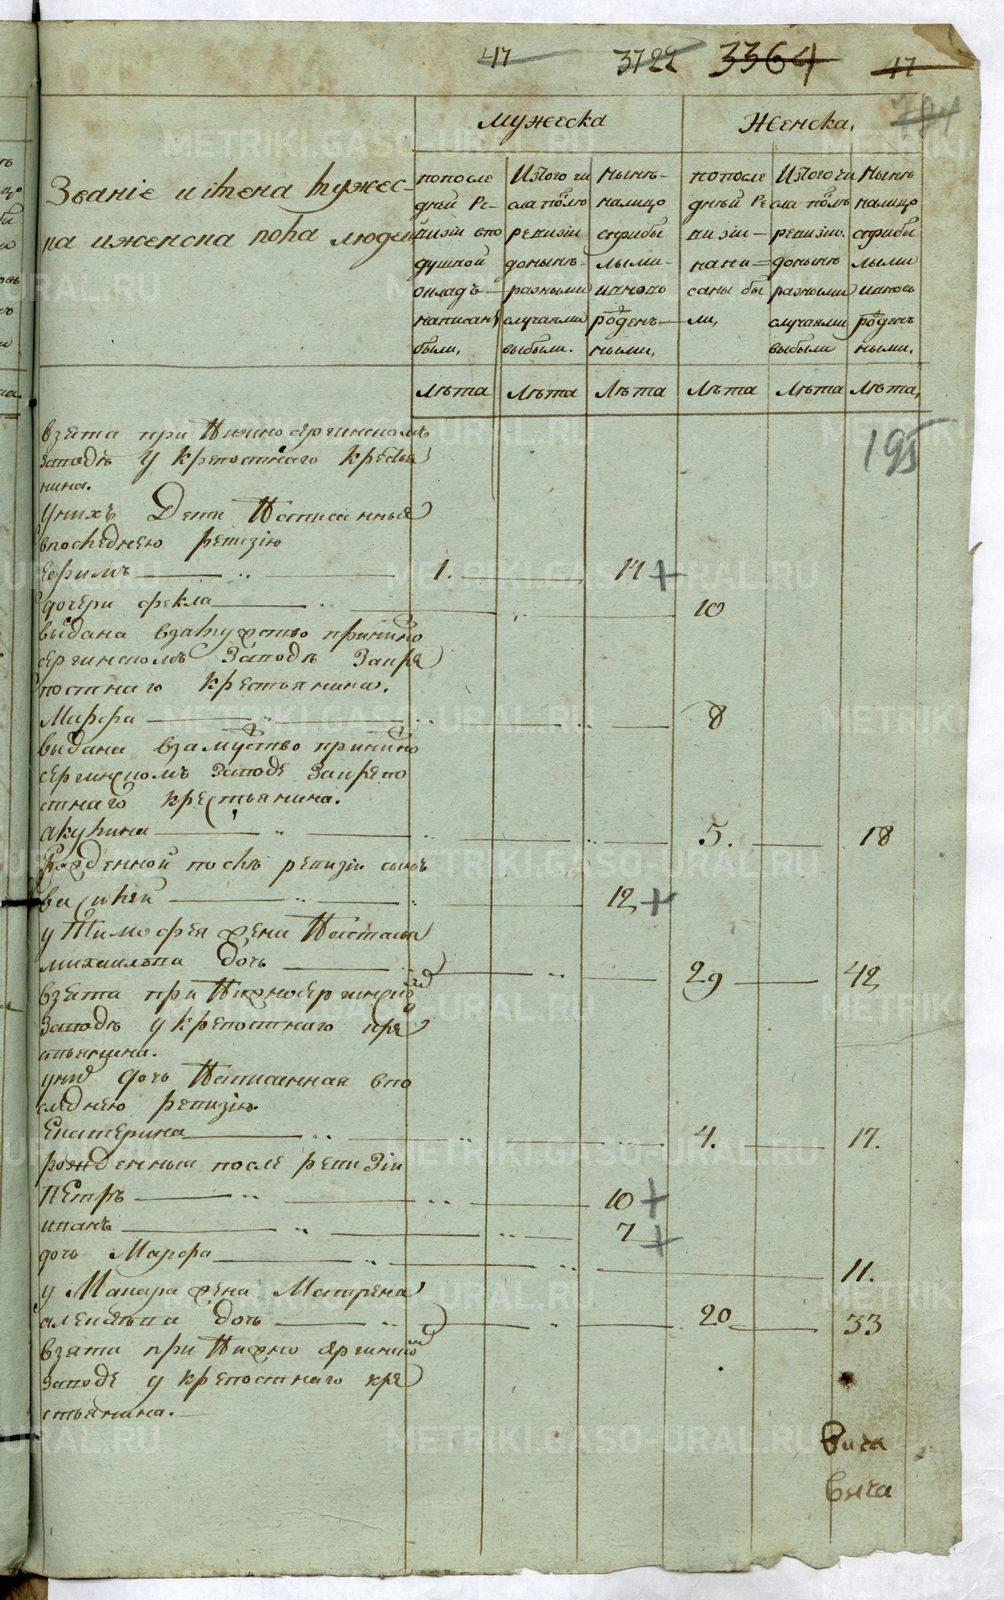 47 3722 3364 47
794
мужеска женска,
Званіе и имена мужес-
ка и женска пола людей
попосле дней Ре- визіи впо душной окладъ написаны были,
Изтого чи сла после ревизіи донынѣ- разными случаями выбыли.
Нынѣ- налицо сприбы лыми- ивновь рожден- ными,
попосле дней Ре визіи- напи= саны бы ли,
Изтого чи сла помъ ревизіи. донынѣ разными случаями выбыли
Нынѣ налицо сприбы лыми ивновь рожден ными,
лѣта лѣта лѣта лѣта лѣта лѣта,
195
взята при Нижносергинскомъ
заводѣ у крепостнаго крестья
нина.
унихъ Дети Написанныя
впоследнею ревизію
Ефимъ 1. 14
дочери фекла 10
выдана взамужство принижно
сергинскомъ Заводѣ Закре
постнаго крестьянина.
Марфа 8
выдана взамуство принижно
сергинскомъ Заводе Закрепо
стнаго крестьянина.
акулина 5. 18
рожденной послѣ ревизіи сынъ
василей 12
у Тимофея жена Наталья
михаилова дочь 29 42
взята при Нижносергинско
Заводѣ у крепостнаго кре
стьянина.
унихъ дочь Написанная впо
следнею ревизію.
Екатерина 4. 17.
рожденныя после ревизіи
Петръ 10
иванъ 7
дочь Марфа 11.
у Макара жена Матрена
алексѣева дочь 20 33
взята при Нижно сергинско
Заводе у крепостнаго кре
стьянина.
METRIKI.GASO-URAL.RU